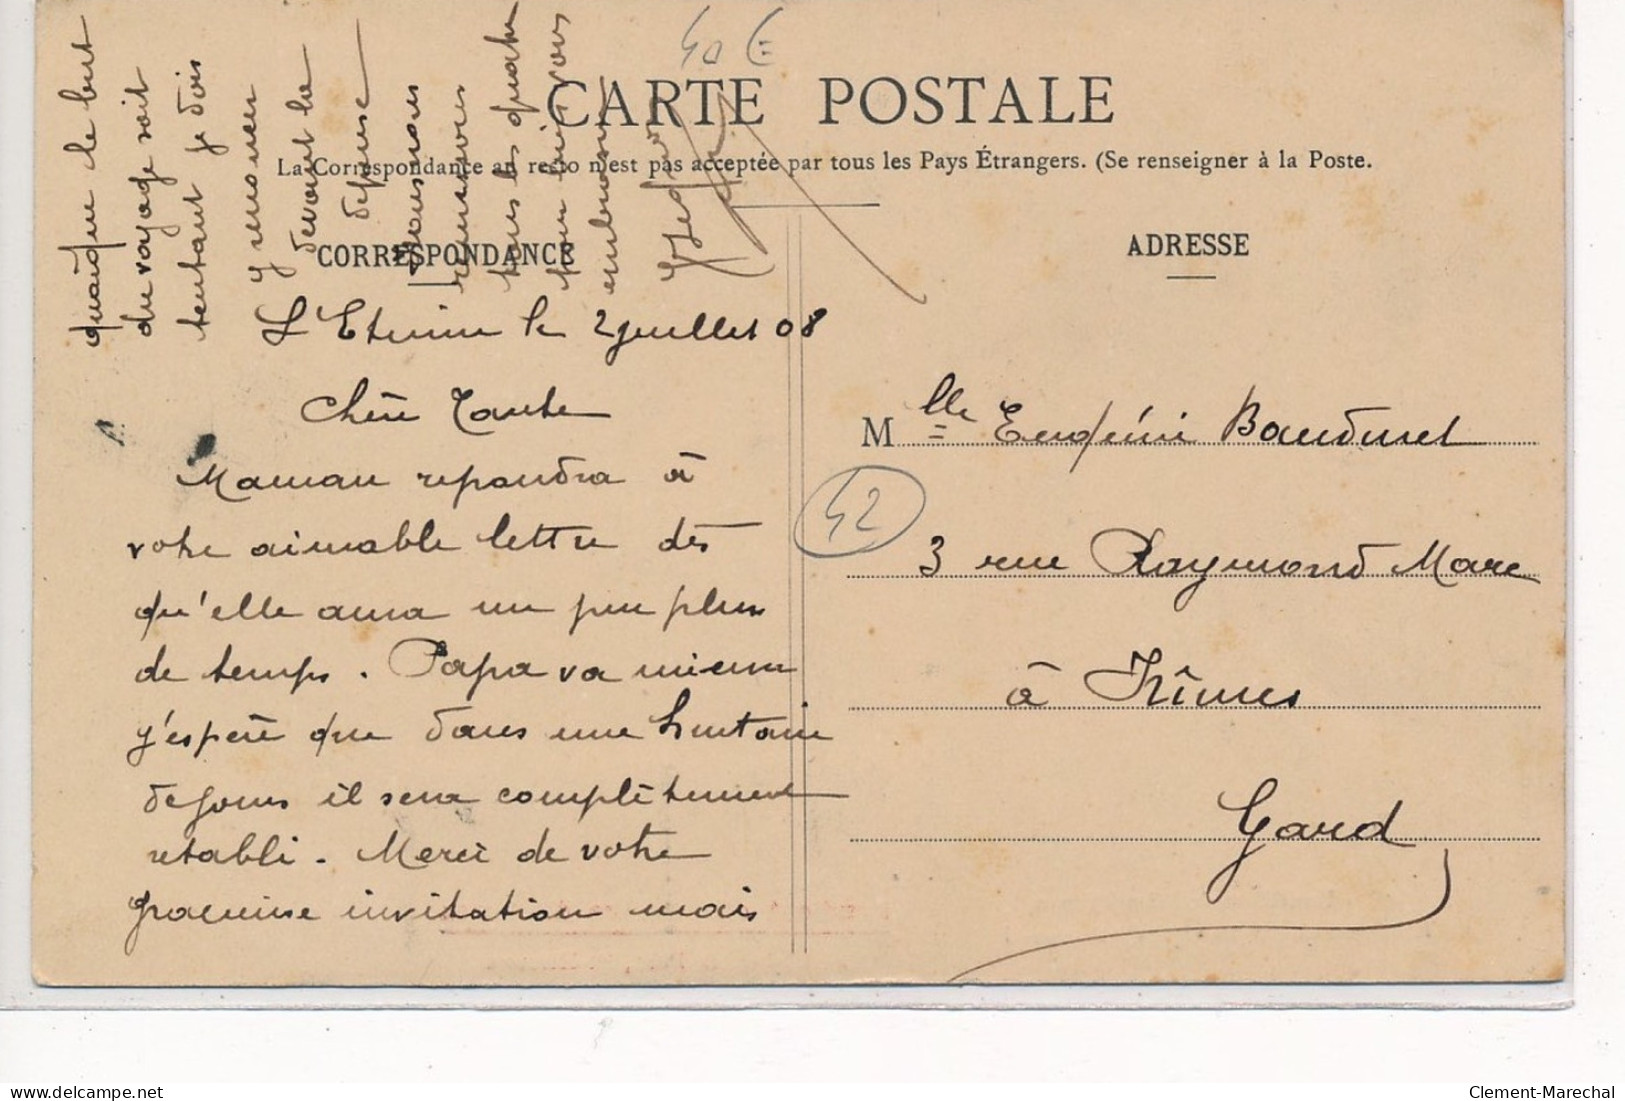 40 €
CARTE POSTALE
La Correspondance au recto n'est pas acceptée par tous les Pays Étrangers. (Se renseigner à la Poste.
CORRESPONDANCE
ADRESSE
le 2 juillet 08
Chère Tante
Maman repondra à
votre aimable lettre dès
qu'elle aura un peu plus
de temps. Papa va mieux
j'espère que dans une huitaine
de jours il sera complètement
retabli. Merci de votre
gracieuse invitation mais
quoique le but
du voyage soit
tentant je dois
y renoncer
devant la
depense
remercions
tous les quatre
pour lui vous
embrasser
Mlle Eugénie
3 rue Raymond Marc
à Nîmes
Gard
42
Clement-Marechal